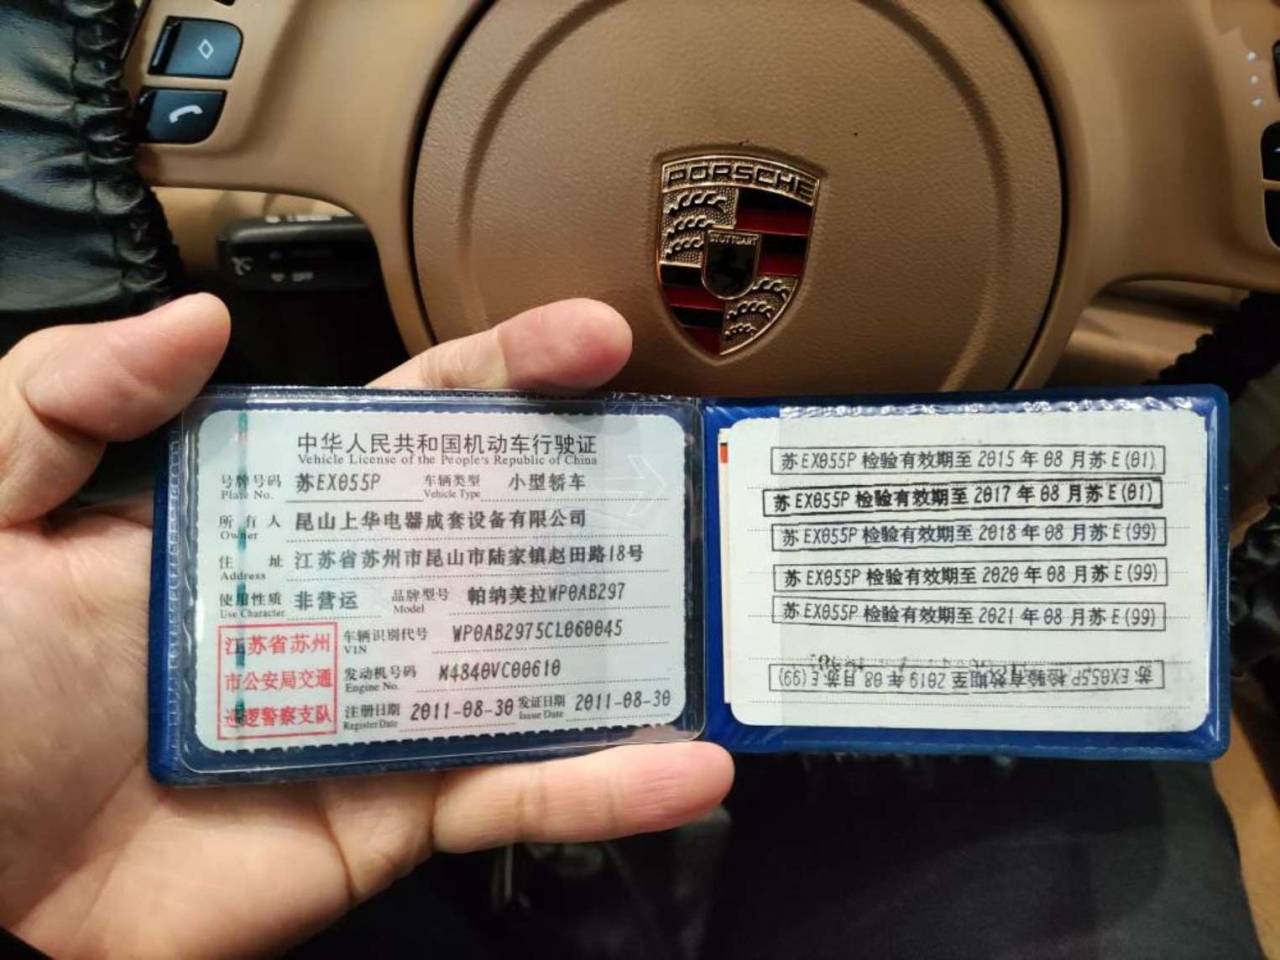 PORSCHE
STUTTGART
中华人民共和国机动车行驶证
Vehicle License of the People's Republic of China
号牌号码 苏EX055P 车辆类型 小型轿车
Plate No. Vehicle Type
所有人 昆山上华电器成套设备有限公司
Owner
住址 江苏省苏州市昆山市陆家镇赵田路18号
Address
使用性质 非营运 品牌型号 帕纳美拉WP0AB297
Use Character Model
江苏省苏州
市公安局交通
巡逻警察支队
车辆识别代号 WP0AB2975CL060045
VIN
发动机号码 M4840VC00610
Engine No.
注册日期 2011-08-30 发证日期 2011-08-30
Register Date Issue Date
苏EX055P 检验有效期至 2015 年 08 月苏E(01)
苏EX055P 检验有效期至 2017 年 08 月苏E(01)
苏EX055P 检验有效期至 2018 年 08 月苏E(99)
苏EX055P 检验有效期至 2020 年 08 月苏E(99)
苏EX055P 检验有效期至 2021 年 08 月苏E(99)
苏EX055P 检验有效期至 2019 年 08 月苏E(99)